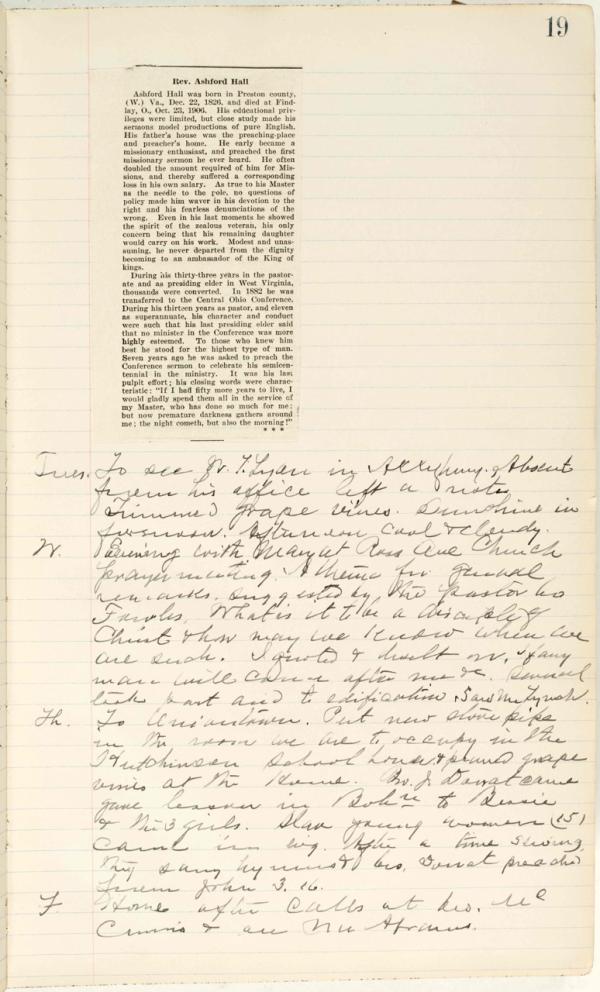 19
Rev. Ashford Hall
Ashford Hall was born in Preston county,
(W.) Va., Dec. 22, 1826, and died at Find-
lay, O., Oct. 23, 1906. His educational priv-
ileges were limited, but close study made his
sermons model productions of pure English.
His father's house was the preaching-place
and preacher's home. He early became a
missionary enthusiast, and preached the first
missionary sermon he ever heard. He often
doubled the amount required of him for Mis-
sions, and thereby suffered a corresponding
loss in his own salary. As true to his Master
as the needle to the pole, no questions of
policy made him waver in his devotion to the
right and his fearless denunciations of the
wrong. Even in his last moments he showed
the spirit of the zealous veteran, his only
concern being that his remaining daughter
would carry on his work. Modest and unas-
suming, he never departed from the dignity
becoming to an ambassador of the King of
kings.
During his thirty-three years in the pastor-
ate and as presiding elder in West Virginia,
thousands were converted. In 1882 he was
transferred to the Central Ohio Conference.
During his thirteen years as pastor, and eleven
as superannuate, his character and conduct
were such that his last presiding elder said
that no minister in the Conference was more
highly esteemed. To those who knew him
best he stood for the highest type of man.
Seven years ago he was asked to preach the
Conference sermon to celebrate his semicen-
tennial in the ministry. It was his last
pulpit effort; his closing words were charac-
teristic: "If I had fifty more years to live, I
would gladly spend them all in the service of
my Master, who has done so much for me;
but now premature darkness gathers around
me; the night cometh, but also the morning!"
* * *
Tues. To see W. T. Lyan in Allegheny. Absent
from his office left a note.
Trimmed grape vines. Sunshine in
forenoon. Afternoon cool & cloudy.
W. Evening with Mary at Ross Ave Church
prayer meeting. A theme for general
remarks, suggested by the pastor
What is it to be a disciple of
Christ & how may we know when we
are such. I quoted & built on, "If any
man will come after me &c. Several
took part and to edification. Saw Mr Lynch.
Th. To Uniontown. Put new stove pipe
in the room we are to occupy in the
Hutchinson School house & pruned grape
vines at the Home. Bro. J. Donat came
gave lesson in Bohn to Bessie
& the 3 girls. Slav young women (15)
came in evg. After a time sewing
they sang hymns & Bro. Donat preached
from John 3.16.
F. Home after calls at
& on Mr Abrams.